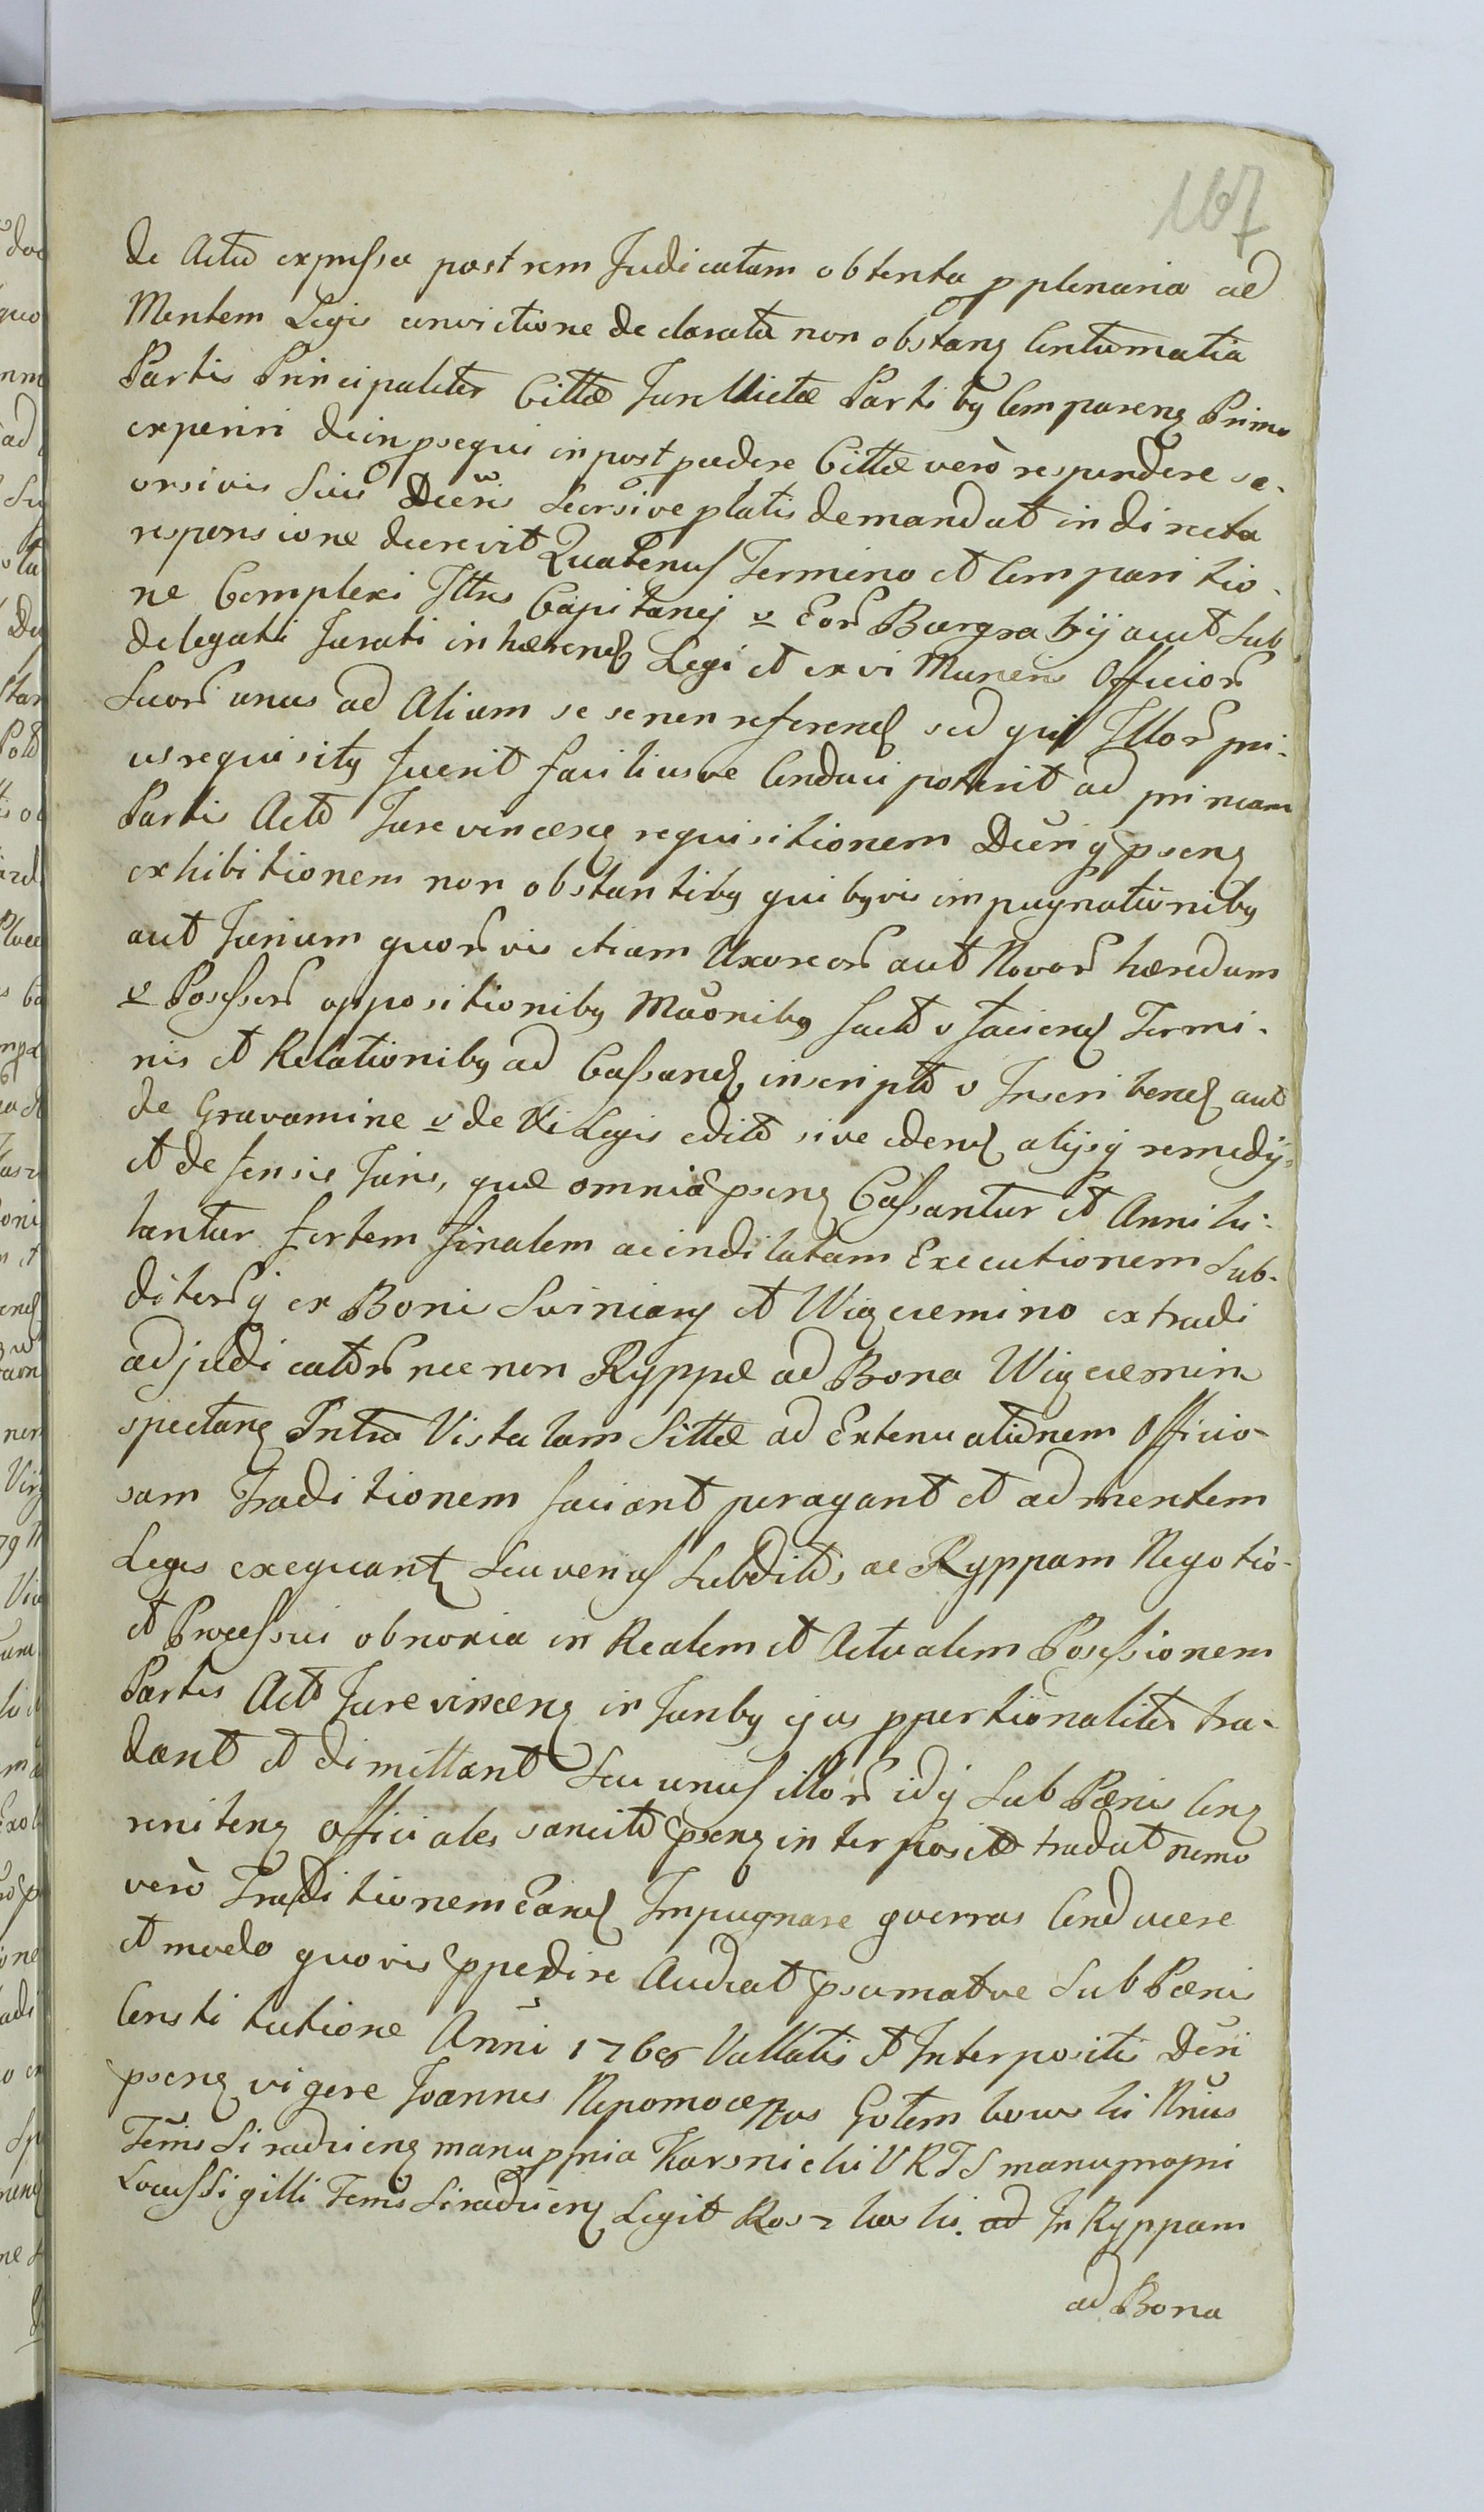 167
de Actu expressa post rem Judicatam obtenta p plenaria ad
Mentem Legis convictione declarata non obstanꝫ Contumatia
Partis Principaliter Cittæ Jure Victæ Partibꝫ Comparenꝫ Primo
experiri dein psequi inpost pædere Cittæ verò respondere se-
orsivis suis Decris Seorsive platis demandat in directa
responsione decrevit Quatenus Termino et Comparitio-
ne Complexi Illres Capitanei v Eor Burgrabij aut Sub
delegati Jurati inhærend Legi et ex vi Muneris Officior
Suor unus ad Alium se se non referend sed quis Illor pri-
us requisitꝫ fuerit faciliusve Conduci poterit ad primam
Partis Acto Jure vincenꝫ requisitionem Decriqꝫ psenꝫ
exhibitionem non obstantibꝫ quibꝫvis impugnationibꝫ
aut Jurium quorvis etiam Uxoreor aut Novor hæredum
v Possessor oppositionibꝫ Mõonibꝫ fact v faciend Termi-
nis et Relationibꝫ ad Cassand inscript v Inscribend aut
de Gravamine v de Vi Legis edit sive edend alijsqꝫ remedijs
et defensis Juris, quæ omnia psenꝫ Cassantur et Annihi-
lantur fortem finalem ac indilatam Executionem Sub-
ditorqꝫ ex Bonis Siriniary et Wiączemino extradi
adjudicator nec non Ryppæ ad Bona Wiączemin
spectanꝫ Intra Vistulam Sittæ ad Extenuationem Officio-
sam Traditionem faciant peragant et ad mentem
Legis exequant Seu venus Subdit, ac Ryppam Negotio-
et Processui obnoxia in Realem et Actualem Possessionem
Partis Act Jure vincenꝫ in Juribꝫ ejus pportionaliter tra-
dant et dimittant Seu unus illor idqꝫ Sub Pænis Conꝫ
renitenꝫ Officiales sancit psenꝫ interposit tradat nemo
verò Traditionem Eand Impugnare guerras Conducere
et modo quovis ppedire Audeat psumatve Sub Pænis
Constitutione Anni 1768 Vallatis et Interpositis Decri
psenꝫ vigere Joannes Nepomocenus Gotembowski Nrius
Terris Siradienꝫ manu ppria Karsnicki V R T S manu propri
Locus Sigilli Terris Siradienꝫ Legit Roszkoski. ad In Ryppam
ad Bona